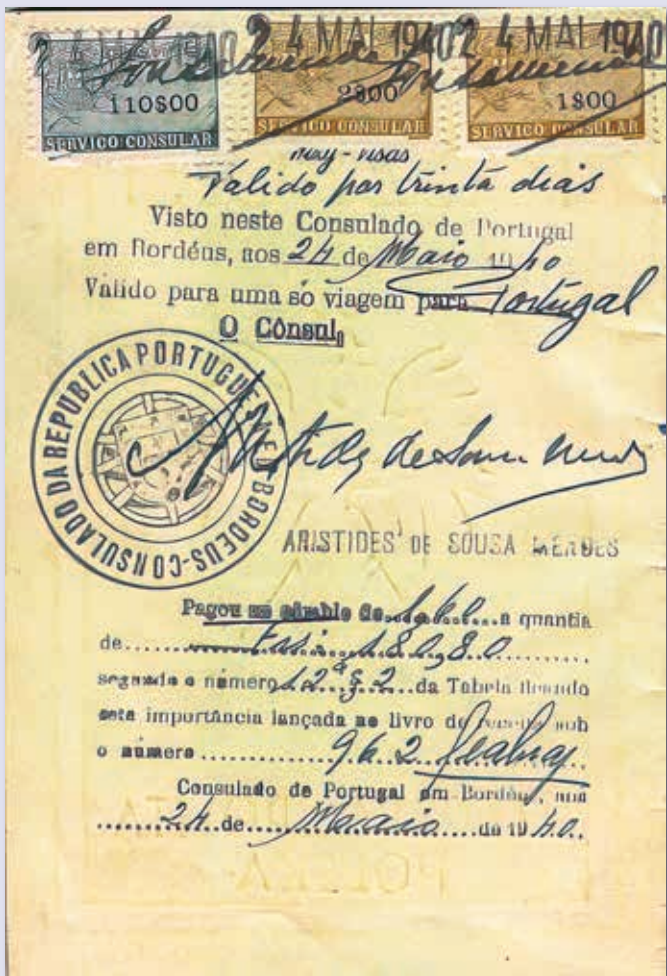 24 MAI 1940 24 MAI 1940 24 MAI 1940
110$00 2$00 1$00
SERVIÇO CONSULAR SERVIÇO CONSULAR SERVIÇO CONSULAR
Valido por trinta dias
Visto neste Consulado de Portugal
em Bordéus, aos 24 de Maio 1940
Valido para uma só viagem para Portugal
O Cônsul,
CONSULADO DA REPUBLICA PORTUGUESA EM BORDEUS
Aristides de Sousa Mendes
ARISTIDES DE SOUSA MENDES
Pagou ao câmbio de 1,60 a quantia
de Frs: 180,80
segundo o número 12º § 2 da Tabela ficando
esta importância lançada no livro de receita sob
o número 962
Consulado de Portugal em Bordéus, aos
24 de Maaio de 1940.